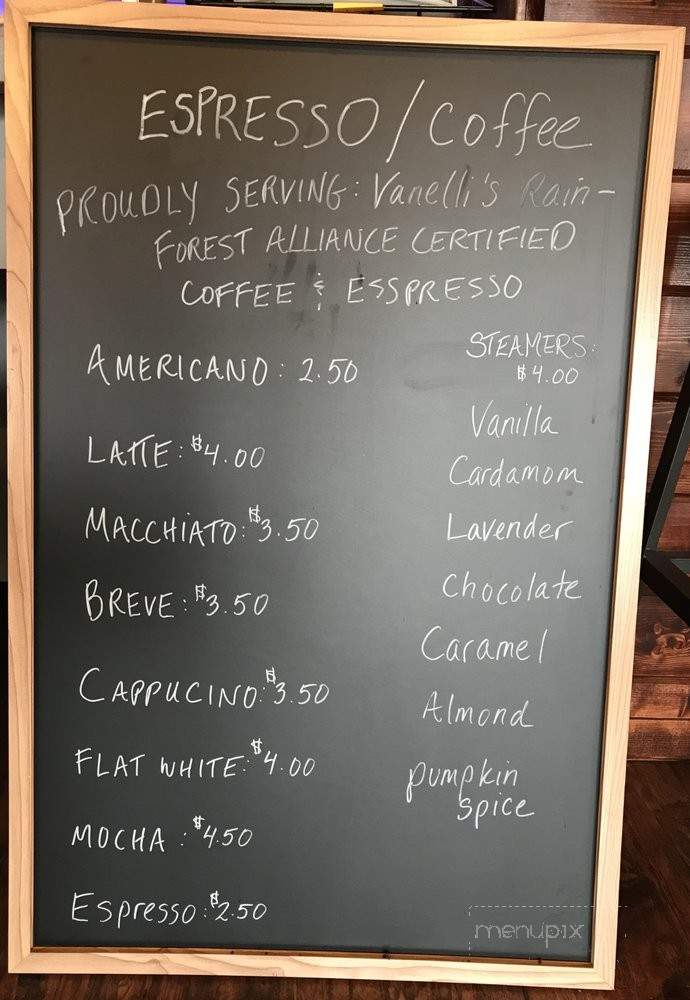 ESPRESSO / Coffee
PROUDLY SERVING: Vanelli's Rain-
FOREST ALLIANCE CERTIFIED
COFFEE & ESSPRESSO
AMERICANO: 2.50
LATTE: $4.00
MACCHIATO: $3.50
BREVE: $3.50
CAPPUCINO: $3.50
FLAT WHITE: $4.00
MOCHA : $4.50
Espresso: $2.50
STEAMERS:
$4.00
Vanilla
Cardamom
Lavender
Chocolate
Caramel
Almond
pumpkin
spice
menupix